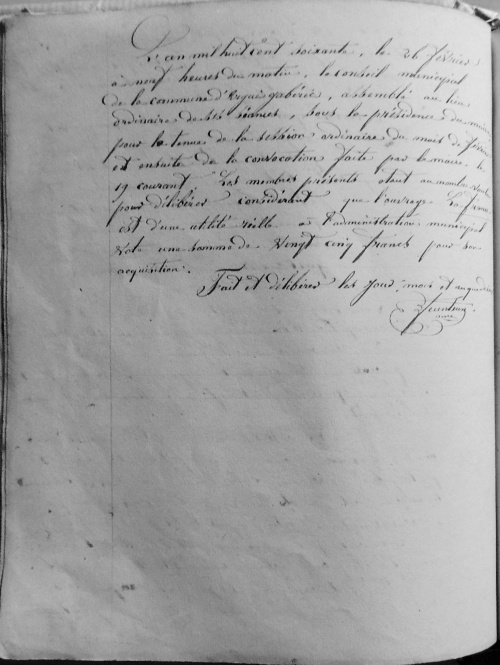 L'an mil huit cent soixante, le 26 février
à neuf heures du matin, le conseil municipal
de la commune d'Ergué-gabéric, assemblé au lieu
ordinaire de ses séances, sous la présidence du maire
pour la tenue de la session ordinaire du mois de février
et ensuite de la convocation faite par le maire le
19 courant. Les membres présents étant au nombre voulu
pour délibérer considérant que l'ouvrage la france
est d'une utilité réelle à l'administration municipale
vote une somme de vingt cinq francs pour son
acquisition.
Fait et délibérer les jour, mois et an que